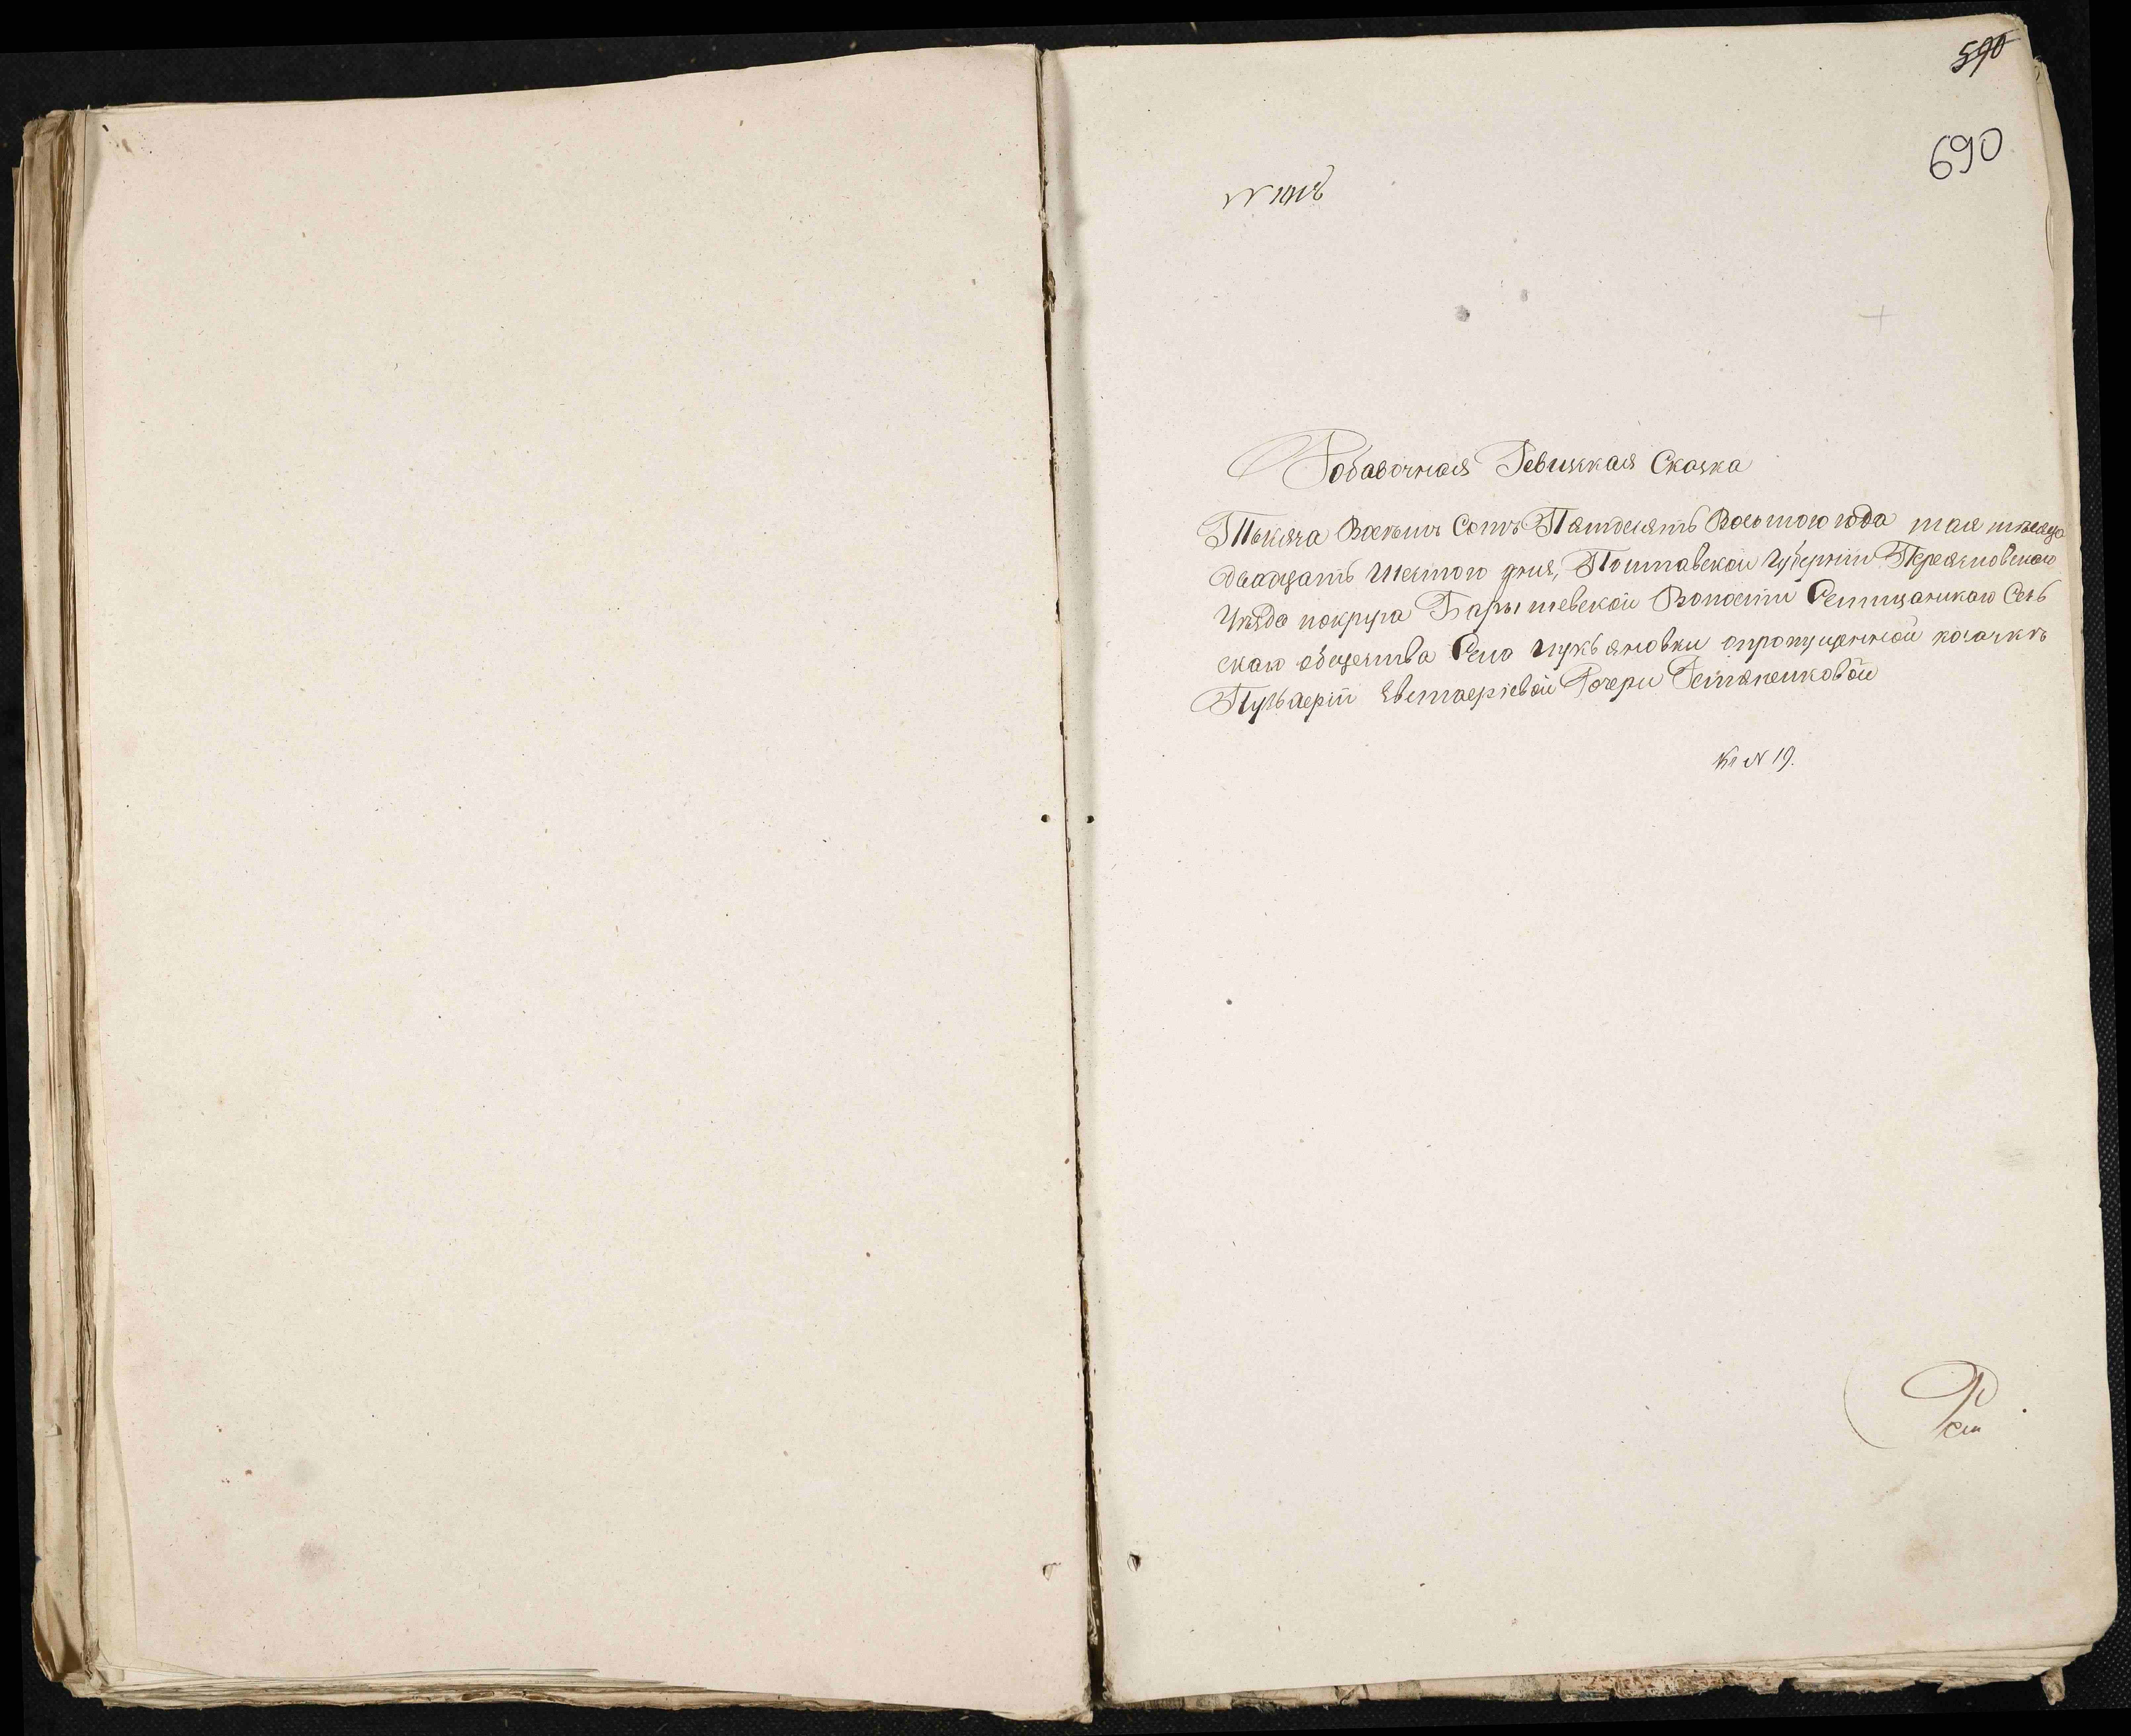 590
690
Добавочная Ревизкая Сказка
Тысяча Восемь Сотъ Пятдесятъ Восьмого года мая месяца
двадцать Шестого дня, Полтавской Губернии Переясловского
Уезда покруга Барышевской Волости Селищанского Сель
ского общества Села Лукьяновки опропущенной козачкъ
Пульхерiи Евстафiевой Дочери
Къ N 19.